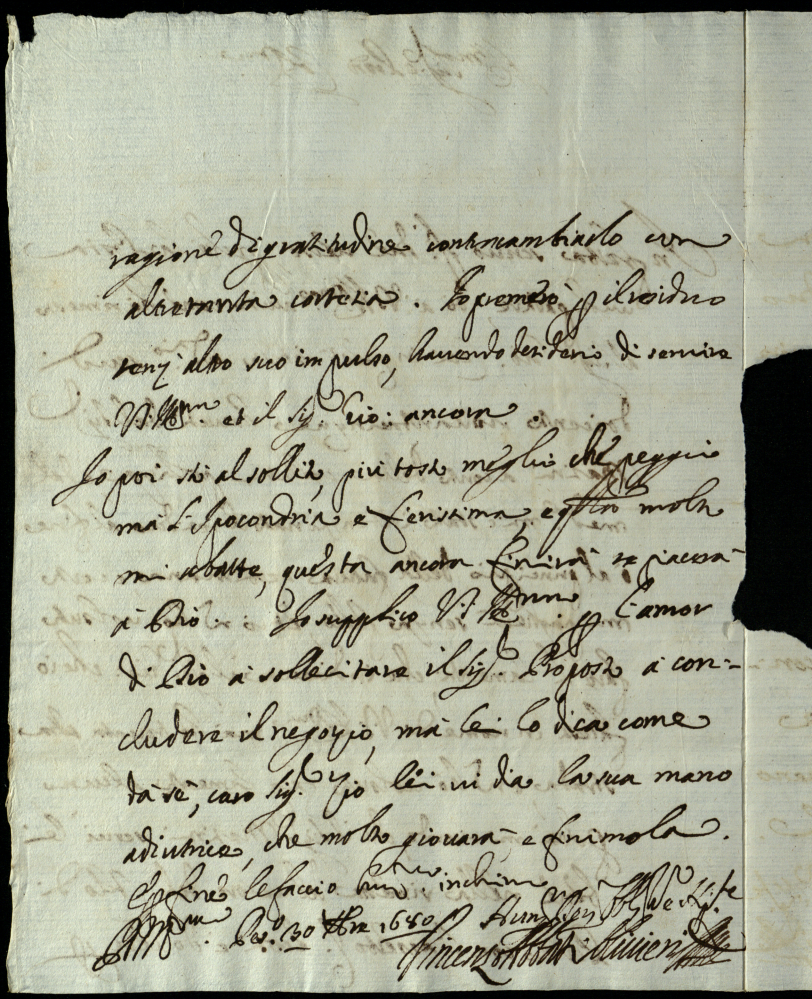 ragione di gratitudine contracambiarlo con
altretanta cortesia. Io premerò p il residuo
senz'altro suo impulso, havendo desiderio di servire
V.S. Ill.ma et il Sig.r Gio: ancora.
Io poi stò al sollito, più tosto meglio che peggio
ma l'Ipocondria è fierissima, e molto
mi abatte, questa ancora finirà se piacerà
à Dio. Io supplico V.S. Ill.ma p l'amor
di Dio à sollecitare il Sig.r Proposto à con=
cludere il negozio, mà lei lo dica come
dà sè, caro Sig.r Zio lei vi dia la sua mano
adiutrice, che molto giovarà, e finimola.
E p fine le faccio inchino
30 1680
Vincenzo Olivieri